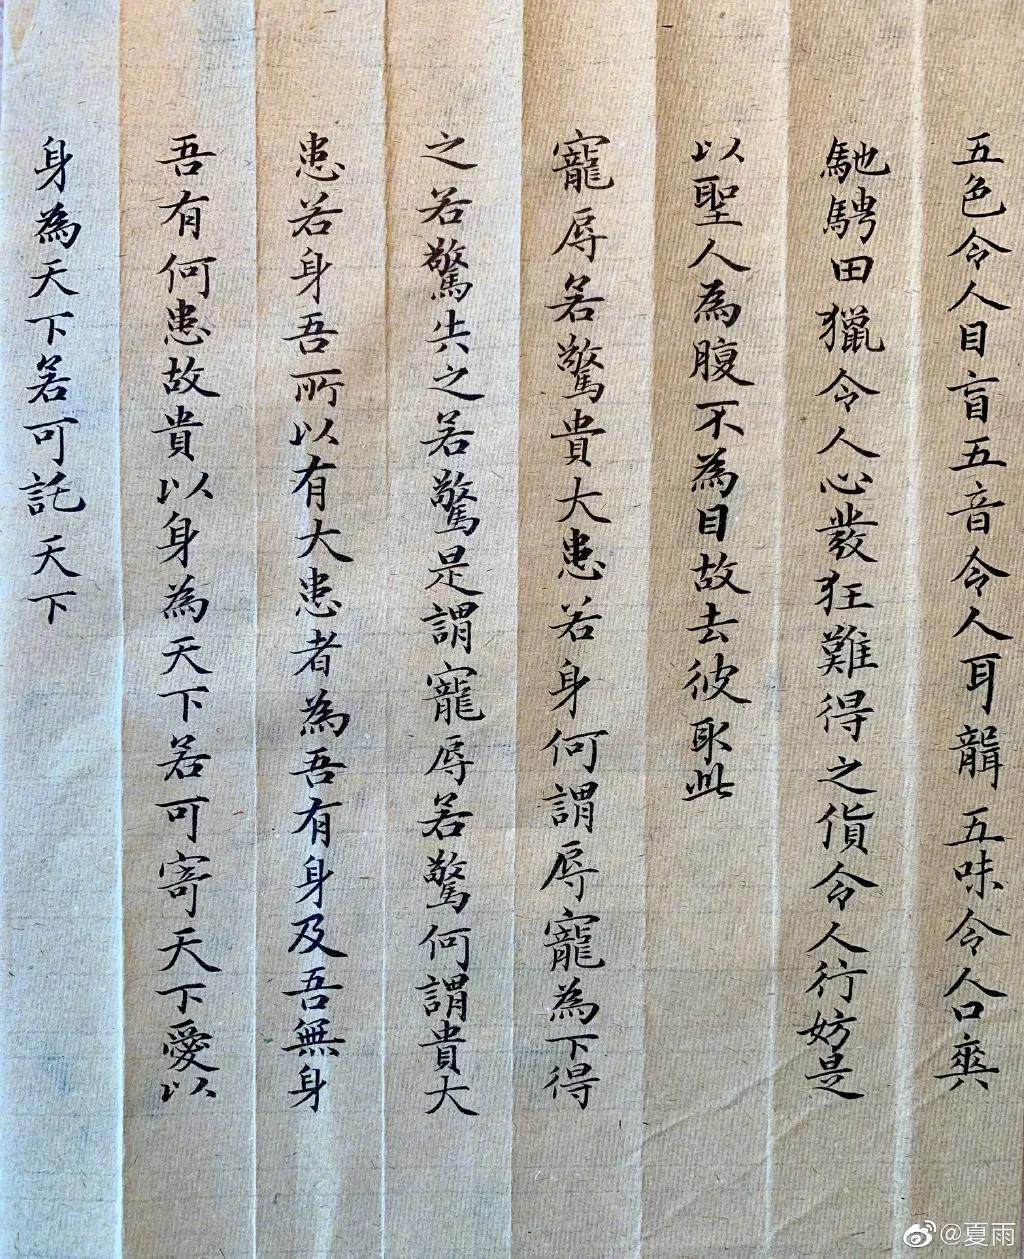 五色令人目盲五音令人耳聾五味令人口爽
馳騁田獵令人心發狂難得之貨令人行妨是
以聖人為腹不為目故去彼取此
寵辱若驚貴大患若身何謂辱寵為下得
之若驚失之若驚是謂寵辱若驚何謂貴大
患若身吾所以有大患者為吾有身及吾無身
吾有何患故貴以身為天下若可寄天下愛以
身為天下若可託天下
@夏雨